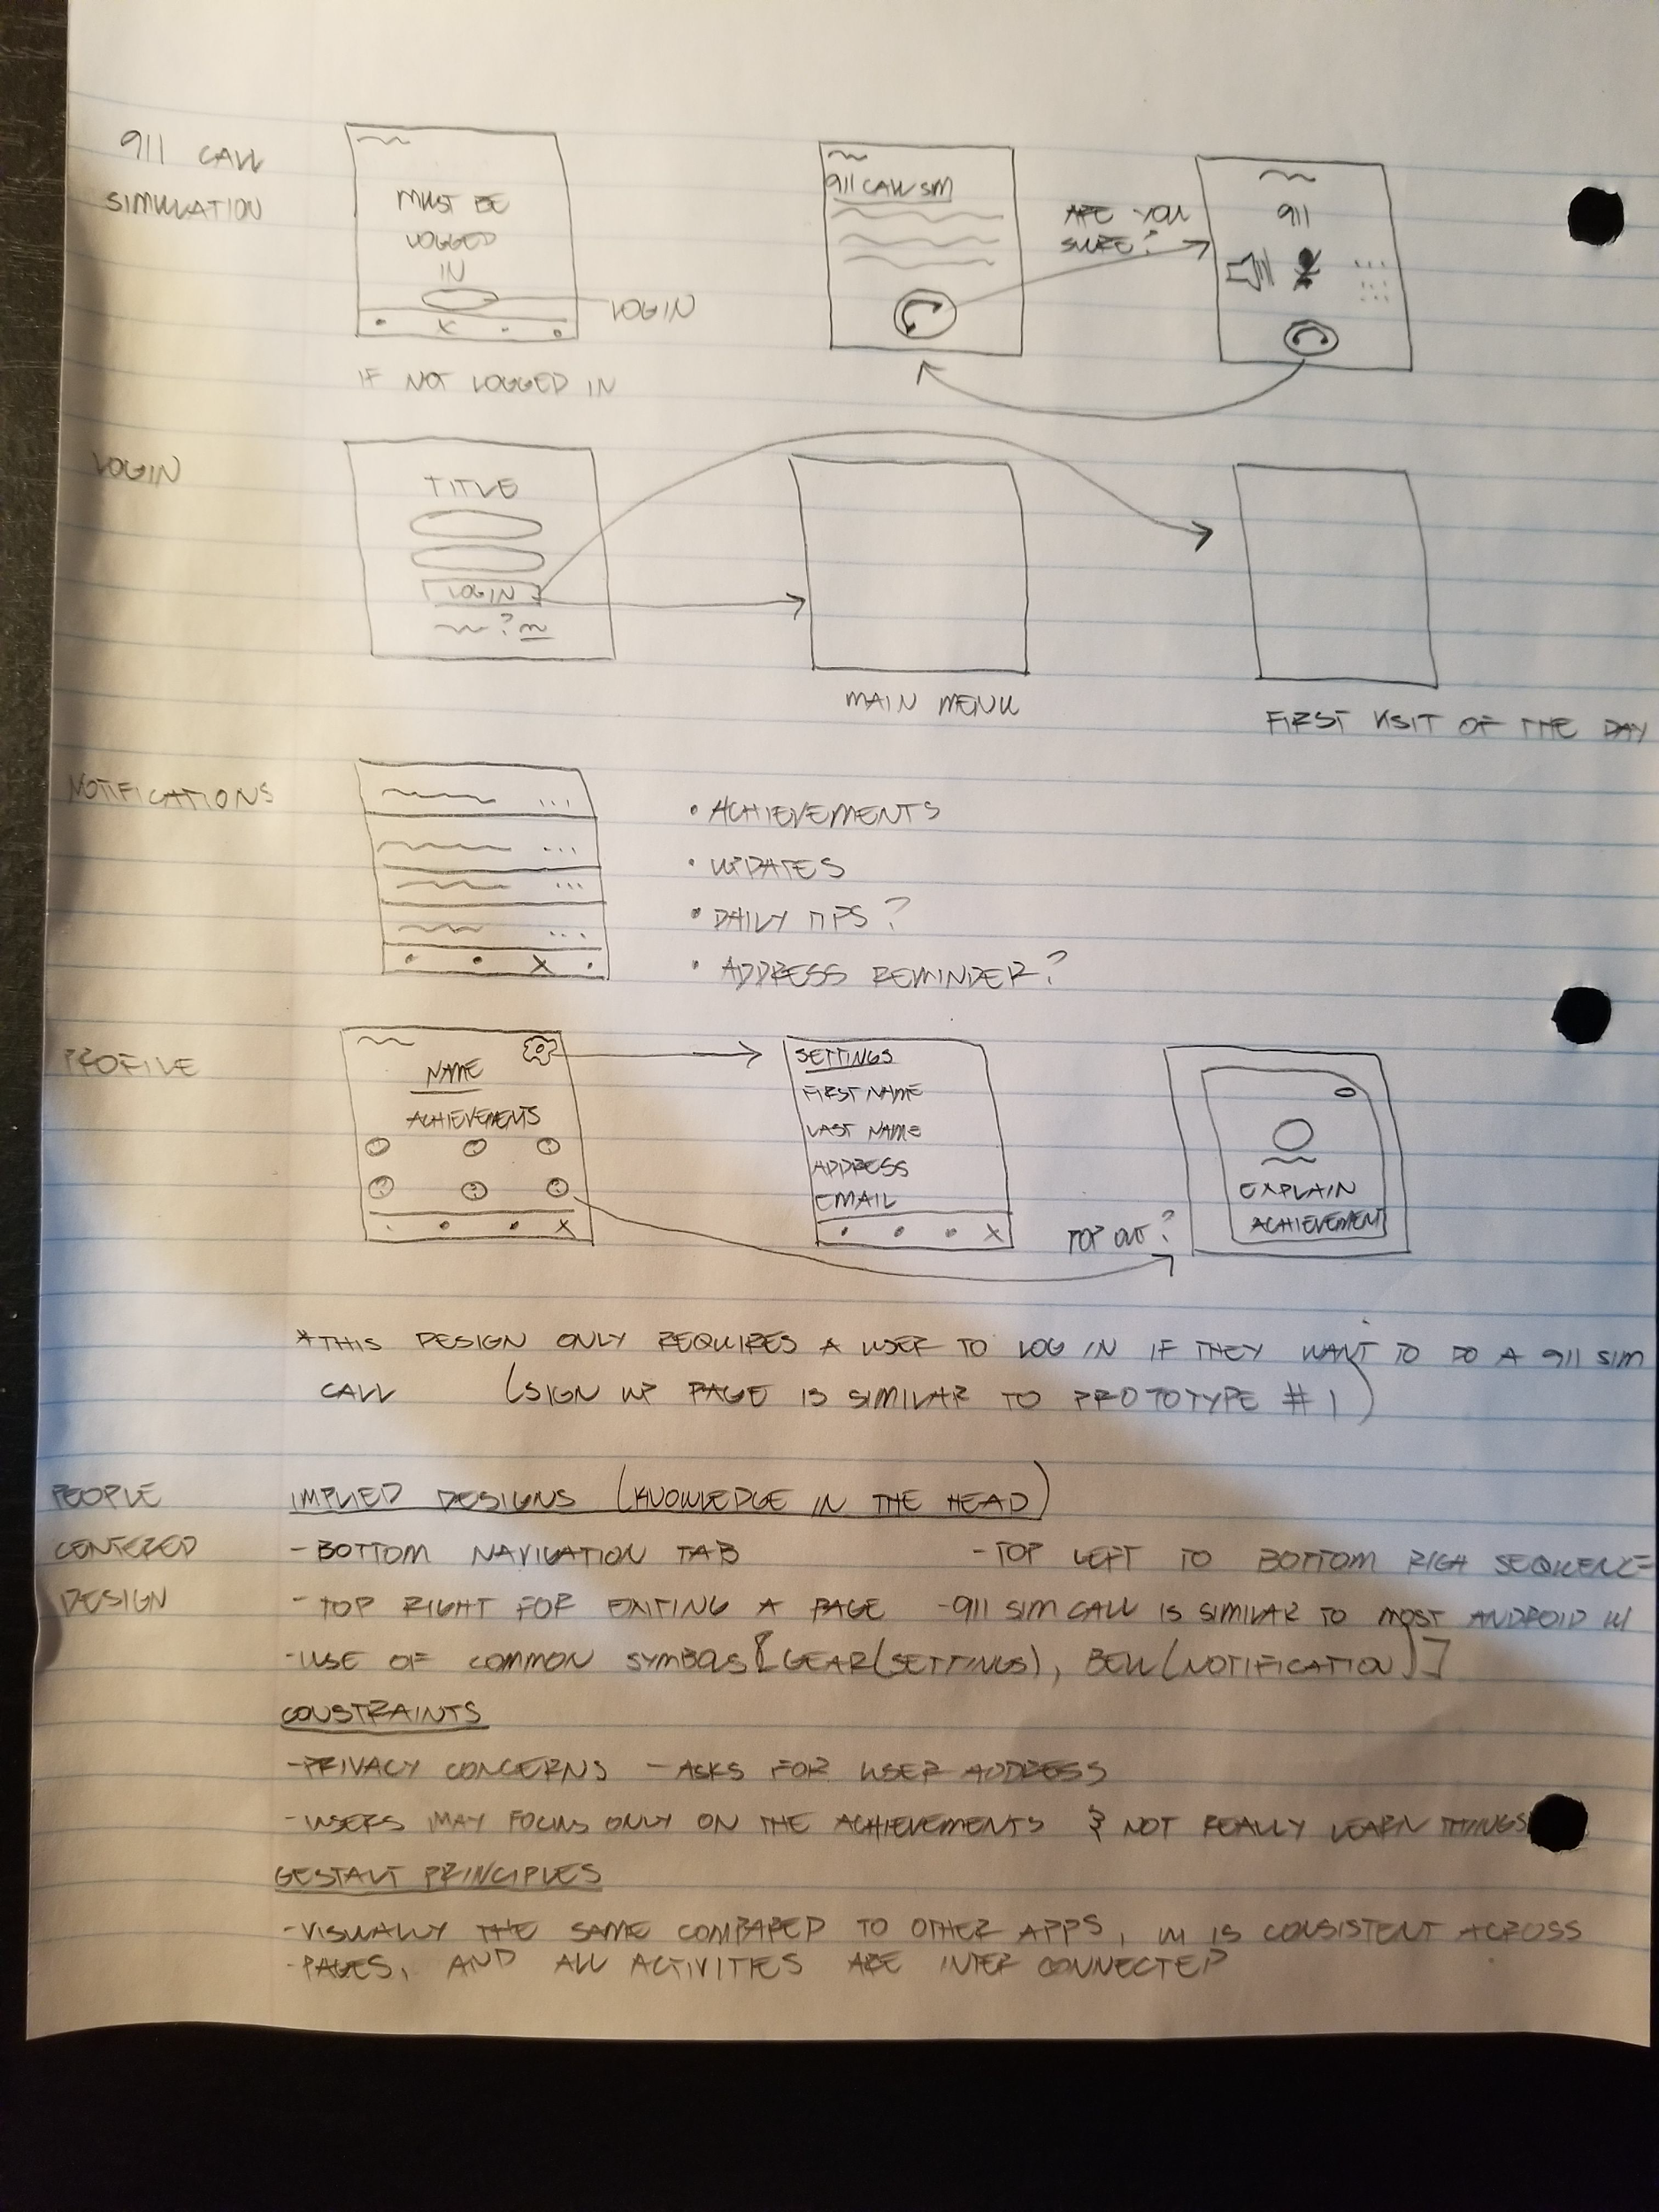 911 CALL
SIMULATION
MUST BE
LOGGED
IN
LOGIN
IF NOT LOGGED IN
911 CALL SIM
ARE YOU
SURE?
911
LOGIN
TITLE
LOGIN
?
MAIN MENU
FIRST VISIT OF THE DAY
NOTIFICATIONS
• ACHIEVEMENTS
• UPDATES
• DAILY TIPS?
• ADDRESS REMINDER?
PROFILE
NAME
ACHIEVEMENTS
SETTINGS
FIRST NAME
LAST NAME
ADDRESS
EMAIL
POP OUT?
EXPLAIN
ACHIEVEMENT
*THIS DESIGN ONLY REQUIRES A USER TO LOG IN IF THEY WANT TO DO A 911 SIM
CALL (SIGN UP PAGE IS SIMILAR TO PROTOTYPE #1)
PEOPLE
CENTERED
DESIGN
IMPLIED DESIGNS (KNOWLEDGE IN THE HEAD)
-BOTTOM NAVIGATION TAB -TOP LEFT TO BOTTOM RIGH SEQUENCE
-TOP RIGHT FOR EXITING A PAGE -911 SIM CALL IS SIMILAR TO MOST ANDROID UI
-USE OF COMMON SYMBOLS [GEAR(SETTINGS), BELL(NOTIFICATION)]
CONSTRAINTS
-PRIVACY CONCERNS - ASKS FOR USER ADDRESS
-USERS MAY FOCUS ONLY ON THE ACHIEVEMENTS & NOT REALLY LEARN THINGS
GESTALT PRINCIPLES
-VISUALLY THE SAME COMPARED TO OTHER APPS, UI IS CONSISTENT ACROSS
-PAGES, AND ALL ACTIVITIES ARE INTER CONNECTED